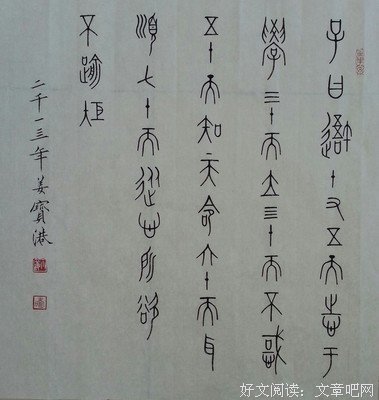 子曰吾十又五而志于
學三十而立亖十而不惑
五十而知天命六十而耳
順七十而從心所欲
不踰矩
二千一三年姜寶港
好文阅读：文章吧网